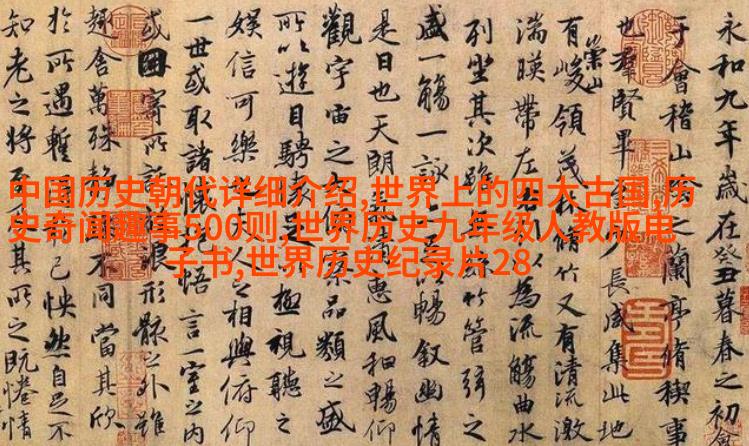 中国历史朝代详细介绍,世界上的四大古国,历
史奇闻趣事500则,世界历史九年级人教版电
子书,世界历史纪录片28
永和九年歲在癸丑暮春之初會
于會稽山之蘭亭脩稧事
也羣賢畢長咸集此地
有崇山峻領茂脩竹又有清流激
湍暎帶左以為流觴曲水
列坐其次雖竹管弦之
盛一觴一詠以暢叙幽情
是日也天朗惠風和暢仰
觀宇宙之品類之盛
所以遊目騁足極視聽之
娛信可樂人之相與俯仰
一世或取諸懷抱悟言一室之內
或因寄所浪形骸之外雖
趣舍萬殊靜不同當其欣
於所遇暫己怏然自足不
知老之將至其所之既惓情